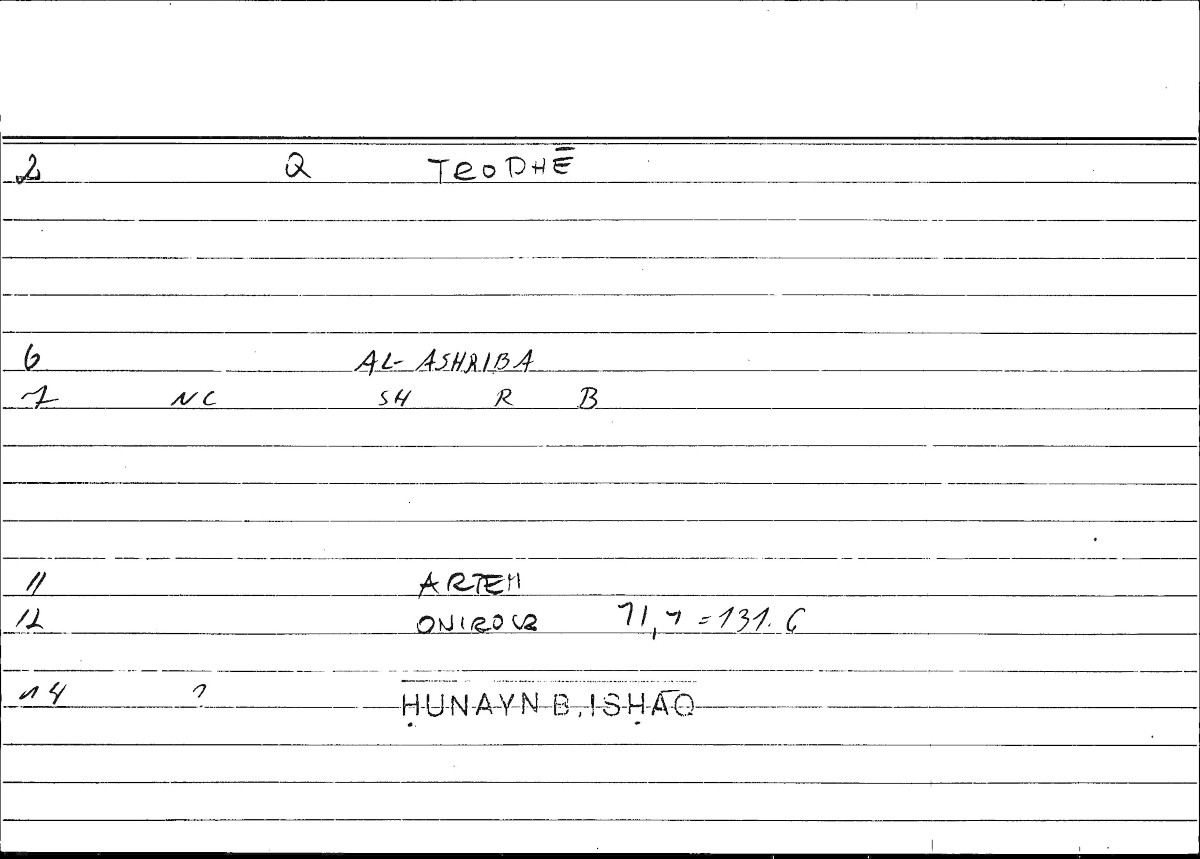 2 Q TRODHĒ
6 AL-ASHRIBA
7 NC SH R B
11 ARTEM
12 ONIROCR 71,7=131.6
14 ? ḤUNAYN B. ISḤĀQ